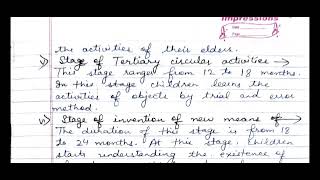 Impressions
the activities of their elders.
v) Stage of Tertiary circular activities →
This stage ranges from 12 to 18 months.
In this stage children learns the
activities of objects by trial and error
method.
vi) Stage of invention of new means of →
The duration of this stage is from 18
to 24 months. At this stage, children
starts understanding the existence of